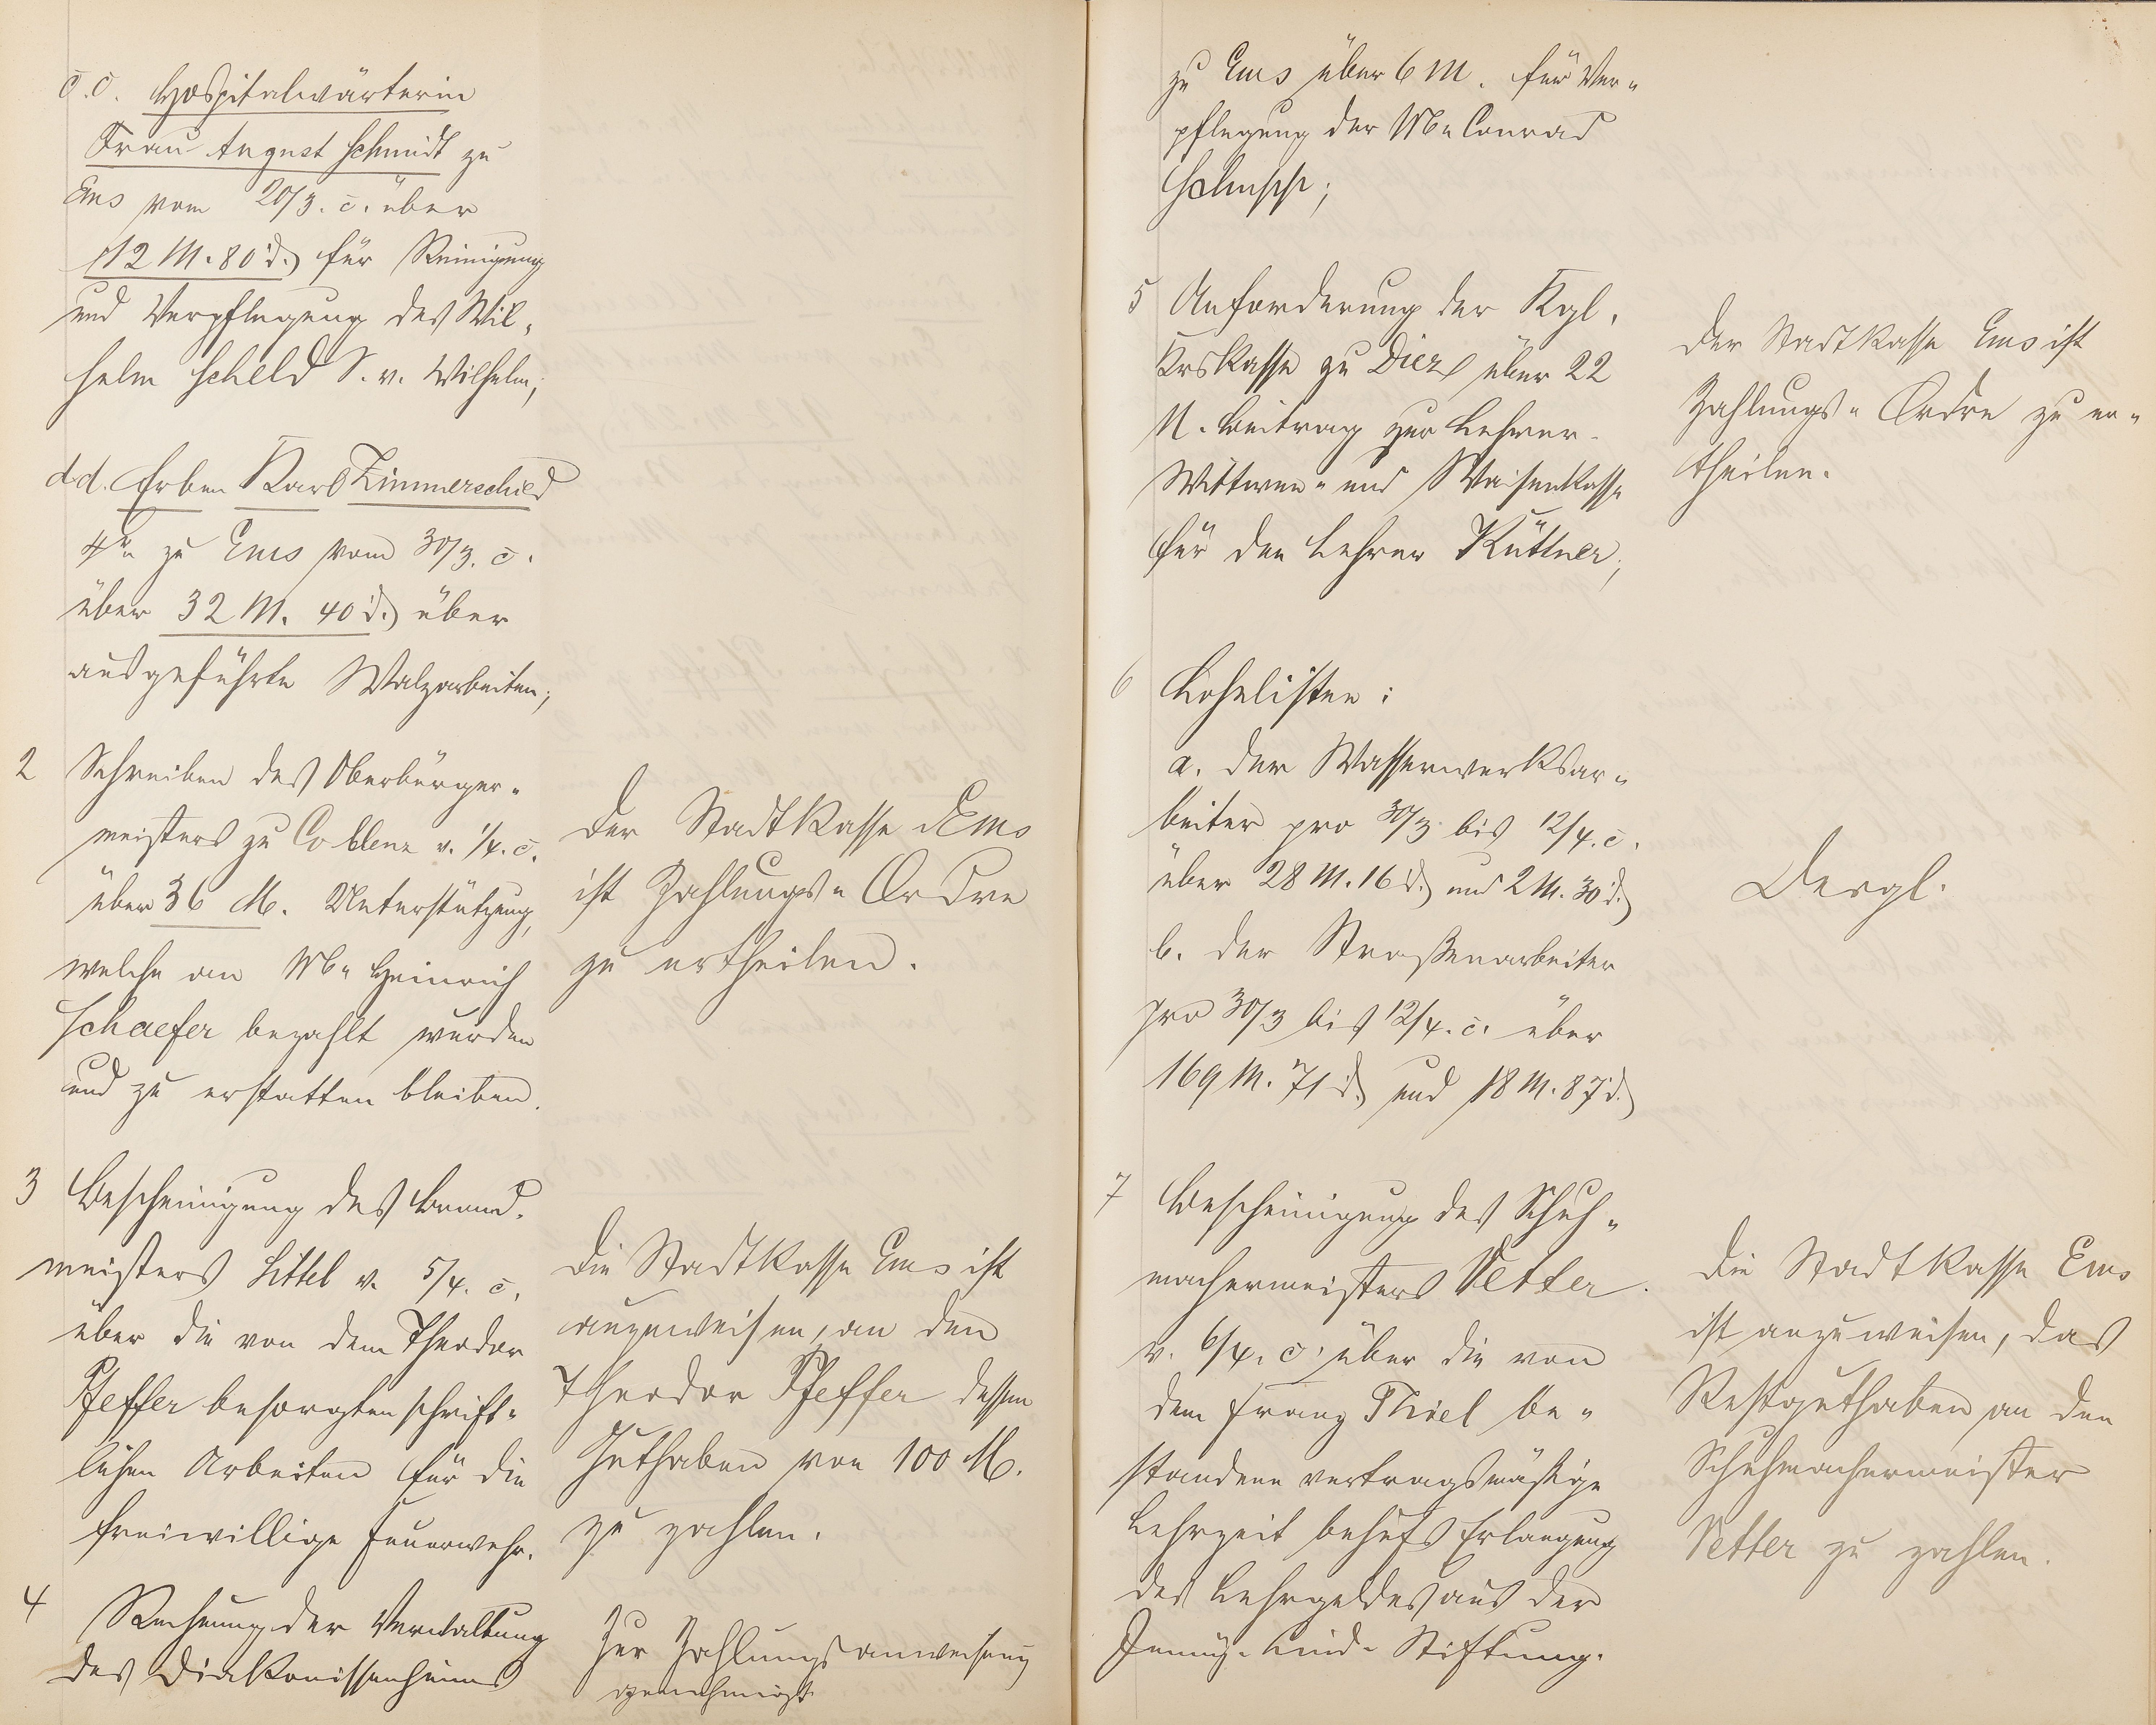 c.c. Hospitalwärterin
Frau August Schmidt zu
Ems vom 20/3. c. über
12 M. 80 d. für Reinigung
und Verpflegung des Wil-
helm Scheld S. v. Wilhelm;
dd. Erben Karl Zimmerschied
4r zu Ems vom 30/3. c.
über 32 M. 40 d. über
ausgeführte Walzarbeiten;
2 Schreiben des Oberbürger-
meisters zu Coblenz v. 1/4. c.
über 36 M. Unterstützung,
welche an Ww Heinrich
Schaefer bezahlt wurden
und zu erstatten bleiben.
Der Stadtkasse Ems
ist Zahlungs- Ordre
zu ertheilen.
3 Bescheinigung des Brand-
meisters Littel v. 5/4. c.
über die von dem Theodor
Pfeffer besorgten schrift-
lichen Arbeiten für die
freiwillige Feuerwehr.
Die Stadtkasse Ems ist
anzuweisen, an den
Theodor Pfeffer dessen
Guthaben von 100 M.
zu zahlen.
4 Rechnung der Verwaltung
des Diakonissenheims
Zur Zahlungsanweisung
genehmigt
zu Ems über 6 M. für Ver-
pflegung der Ww Conrad
5 Anforderung der Kgl.
Krskasse zu Diez über 22
M. Beitrag zur Lehrer-
Wittwen- und Waisenkasse
für den Lehrer Küttner;
Der Stadtkasse Ems ist
Zahlungs- Ordre zu er-
theilen.
6 Lohnlisten:
a. der Wasserwerksar-
beiter pro 30/3 bis 12/4. c.
über 28 M. 16 d. und 2 M. 30 d.
b. der Straßenarbeiter
pro 30/3 bis 12/4. c. über
169 M. 71 d. und 18 M. 87 d.
Dergl.
7 Bescheinigung des Schuh-
machermeisters Vetter
v. 6/4. c. über die von
dem Franz Thiel be-
standene vertragsmäßige
Lehrzeit behufs Erlangung
des Lehrgeldes aus der
Jenny- Lind- Stiftung.
Die Stadtkasse Ems
ist anzuweisen, das
Restguthaben an den
Schuhmachermeister
Vetter zu zahlen.